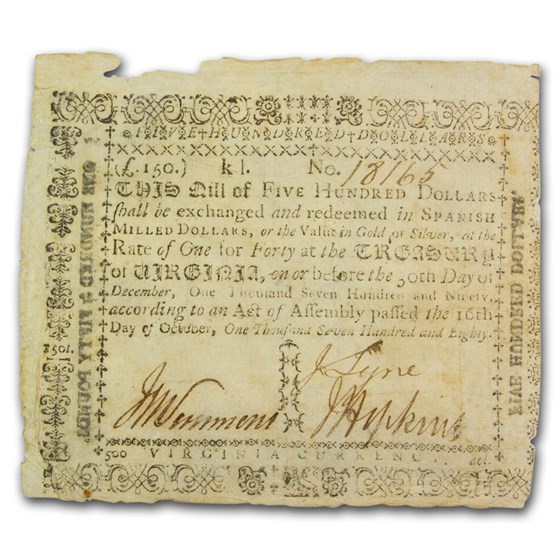 FIVE HUNDRED DOLLARS
(£.150.) k l. No. 18165
THIS Bill of FIVE HUNDRED DOLLARS
shall be exchanged and redeemed in SPANISH
MILLED DOLLARS, or the Value in Gold or Silver, at the
Rate of One for Forty at the TREASURY
of VIRGINIA, on or before the 30th Day of
December, One Thousand Seven Hundred and Ninety,
according to an Act of Assembly passed the 16th
Day of October, One Thousand Seven Hundred and Eighty.
J Lyne
J Hopkins
500 VIRGINIA CURRENCY. dol.
ONE HUNDRED & FIFTY POUNDS.
150l.
FIVE HUNDRED DOLLARS.